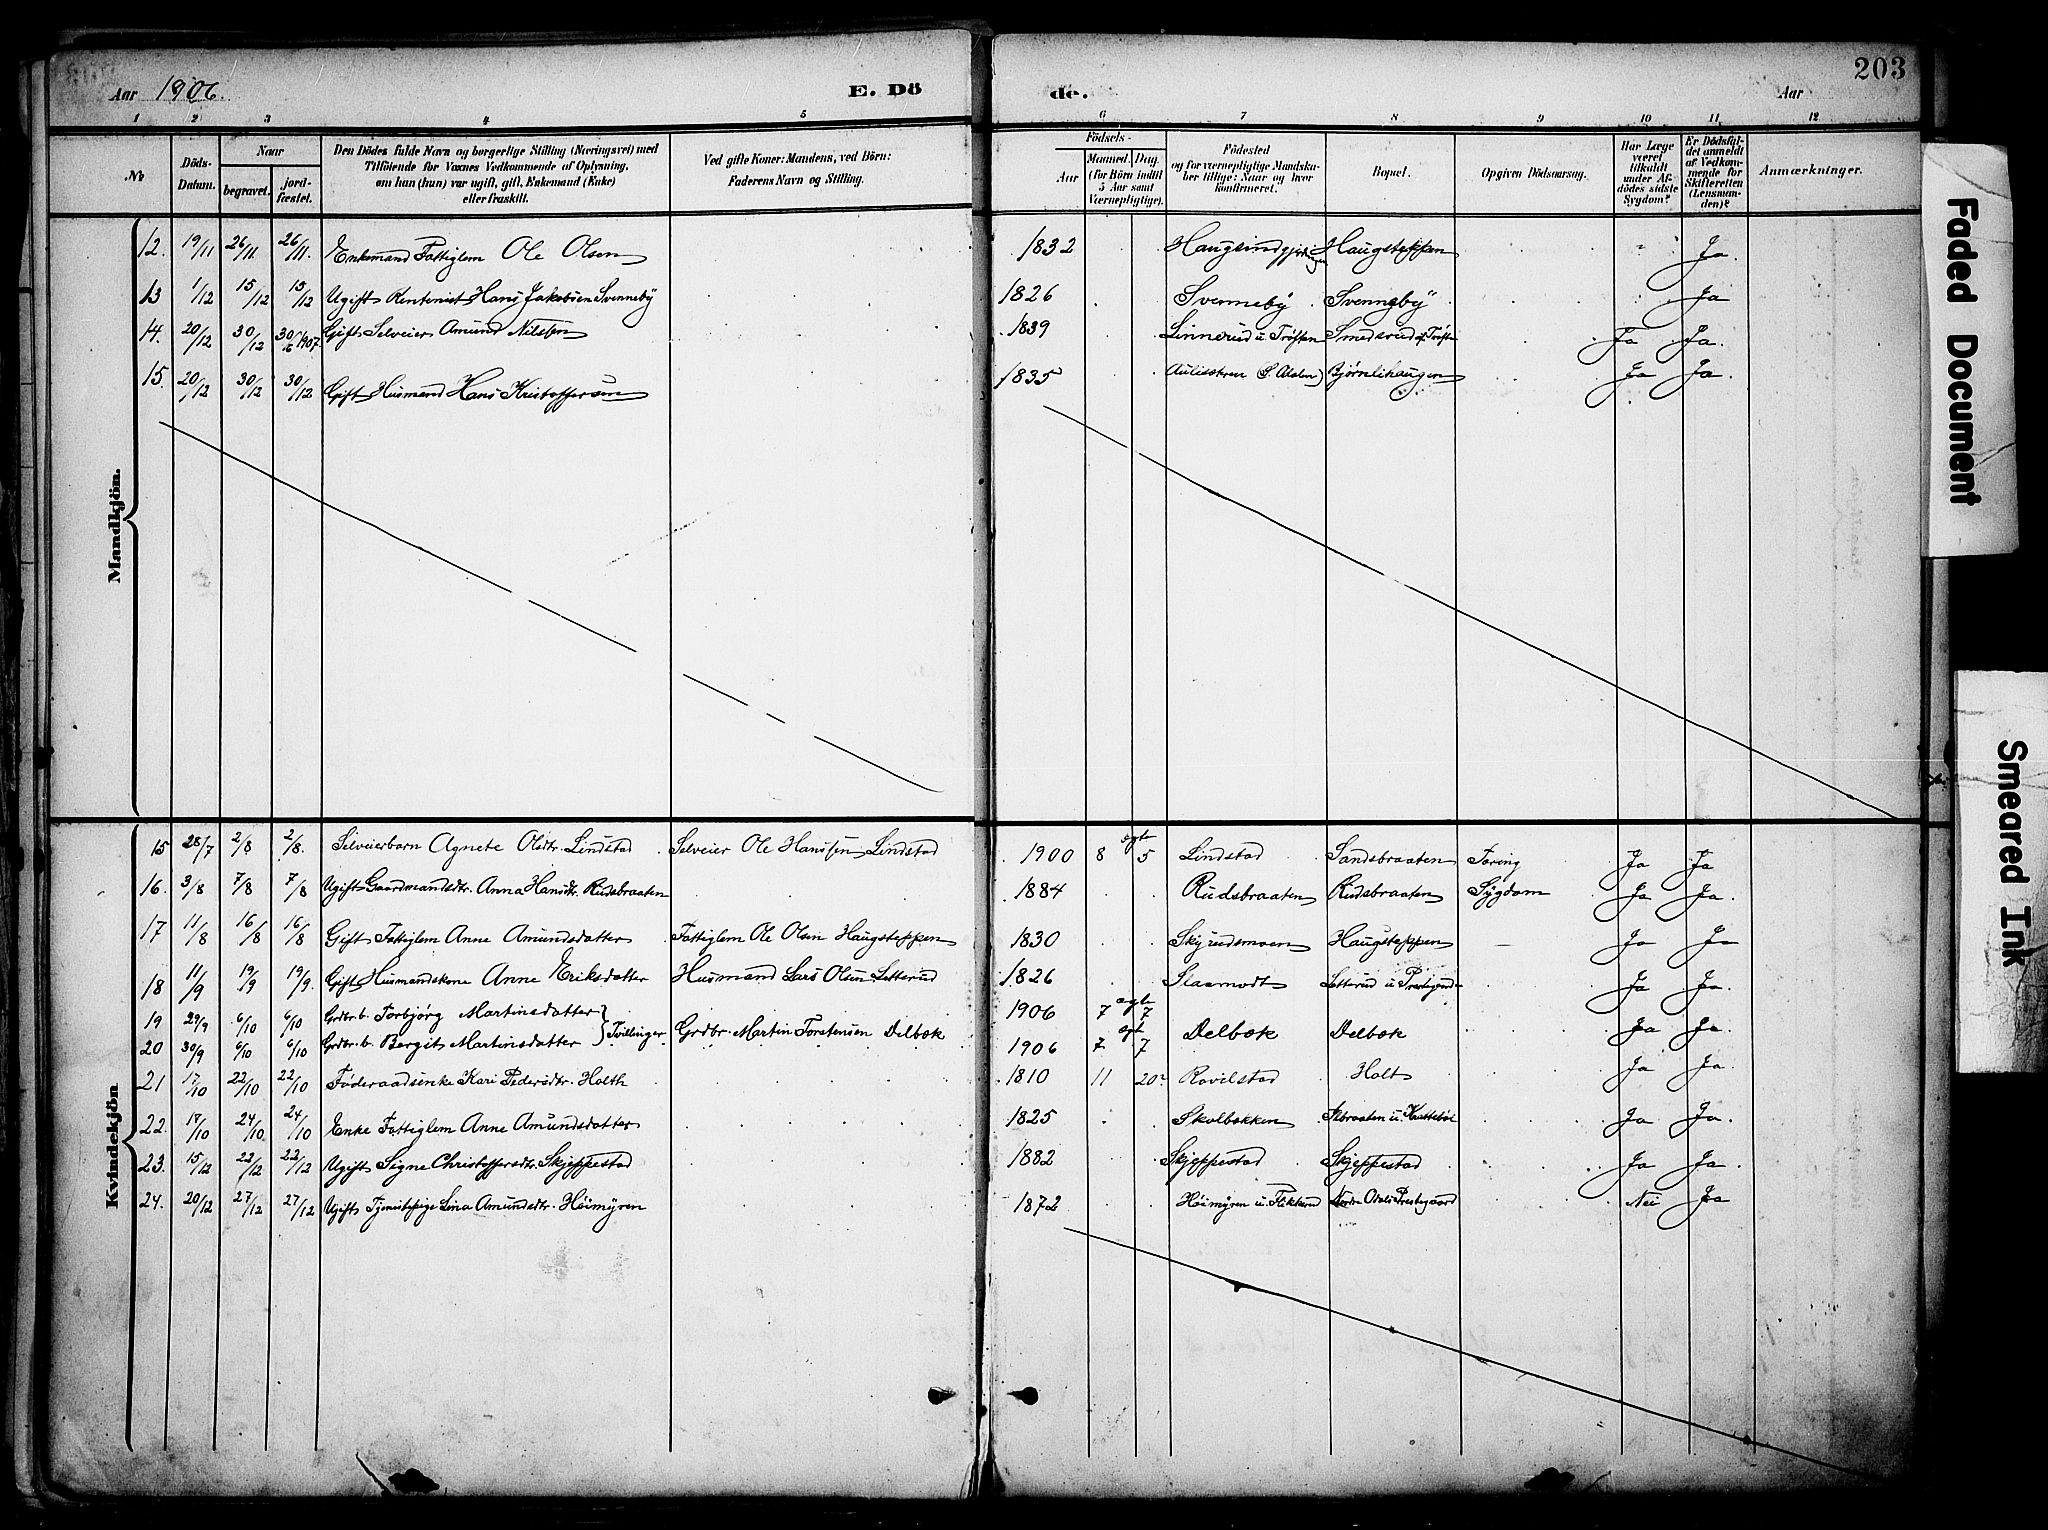 203
Aar 1906.
E. Dö
de.
Aar
1 2 3 4 5 6 7 8 9 10 11 12
№
Döds-Datum.
Naar
begravet.
jord-fæstet.
Den Dödes fulde Navn og borgerlige Stilling (Næringsvei) med
Tilföiende for Voxnes Vedkommende af Oplysning,
om han (hun) var ugift, gift, Enkemand (Enke)
eller fraskilt.
Ved gifte Koner: Mandens, ved Börn:
Faderens Navn og Stilling.
Födsels-
Aar
Maaned. Dag.
(for Börn indtil
5 Aar samt
Værnepligtige).
Födested
og for værnepligtige Mandska-
ber tillige: Naar og hvor
konfirmeret.
Bopæl.
Opgiven Dödsaarsag.
Har Læge
været
tilkaldt
under Af-
dödes sidste
Sygdom?
Er Dödsfal-
det anmeldt
af Vedkom-
mende for
Skifteretten
(Lensman-
den)?
Anmærkninger.
Mandkjön.
12. 19/11 26/11 26/11. Enkemand Fattiglem Ole Olsen 1832 Haugsteppen Ja.
13 1/12 15/12 15/12 Ugift Rentenist Hans Jakobsen Svenneby 1826 Svenneby Svenneby Ja
14. 20/12 30/12 30/6 1907. Gift Selveier Amund Nilsen 1839 Linnerud u. Trøften Smedsrud Ja Ja.
15. 20/12 30/12 30/12 Gift Husmand Hans Kristoffersen 1835 Bjørnlihaugen Ja Ja.
Kvindekjön
15 28/7 2/8 2/8. Selveierbarn Agnete Olsdtr. Lindstad Selveier Ole Hanssen Lindstad 1900 8 egte 5 Lindstad Sandsbraaten Tæring Ja Ja
16. 3/8 7/8 7/8 Ugift Gaardmandsdtr. Anna Hansdtr. Rudsbraaten 1884 Rudsbraaten Rudsbraaten Sygdom Ja Ja.
17 11/8 16/8 16/8 Gift Fattiglem Anne Amundsdatter Fattiglem Ole Olsen Haugsteppen 1830 Skyrudsmoen Haugsteppen Ja Ja
18 11/9 19/9 19/9. Gift Husmandskone Anne Eriksdatter Husmand Lars Olsen Letterud 1826 Slaamodt Letterud u Ja Ja.
19 29/9 6/10 6/10 Grdbr. b. Torbjörg Martinsdatter } Tvillinger Grdbr. Martin Torstensen Delbæk 1906 7 egte 7 Delbæk Delbæk Ja Ja.
20 30/9 6/10 6/10 Grdbr. b. Bergit Martinsdatter 1906 7 egt 7
21 17/10 22/10 22/10 Føderaadsenke Kari Pedersdtr. Holth 1810 11 20 Rovilstad Holt Ja Ja.
22. 17/10 24/10 24/10 Enke Fattiglem Anne Amundsdatter 1825 Skolbækken Ja Ja.
23. 15/12 22/12 22/12 Ugift Signe Christoffersdtr. Skjeppestad 1882 Skjeppestad Skjeppestad Ja Ja.
24. 20/12 27/12 27/12 Ugift Tjenestepige Lina Amundsdtr. Höimyren 1872 Höimyren u. Flikkerud Nordre Odals Prestegaard Nei Ja
Faded Document
Smeared Ink